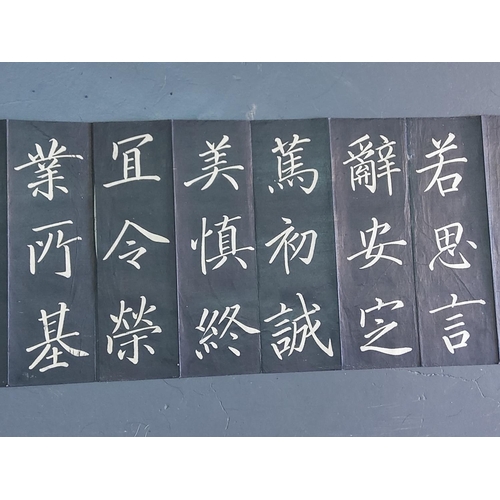 若思言
辭安定
篤初誠
美慎終
宜令榮
業所基